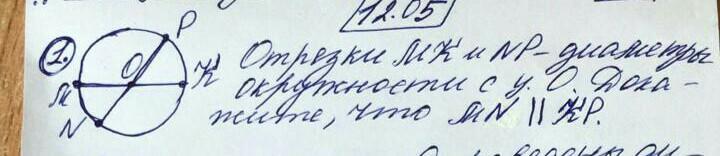 12.05
1. Отрезки MK и NP - диаметры
окружности с ц. O. Дока-
жите, что MN || KP.
P
O
K
M
N